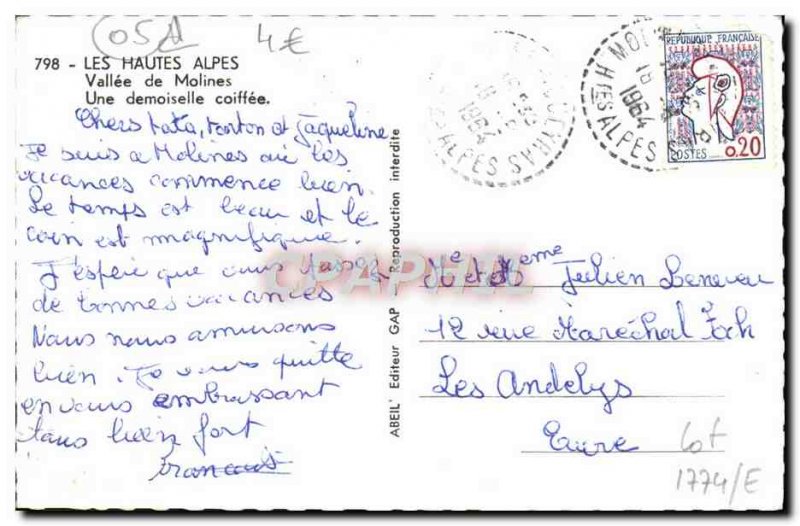 05A
4€
798 - LES HAUTES ALPES
Vallée de Molines
Une demoiselle coiffée.
Chers tata, tonton et Jaqueline
Je suis a Molines où les
vacances commence bien.
Le temps est beau et le
coin est magnifique.
J'espère que vous passez
de bonnes vacances
Nous nous amusons
bien. Je vous quitte
en vous embrassant
tous bien fort
ABEIL' Editeur GAP - Reproduction interdite
CPAPHIL
1964
HTES ALPES
REPUBLIQUE FRANÇAISE
POSTES 0.20
Mr et Mme Julien
12 rue Maréchal Foch
Les Andelys
Eure
lot
1774/E